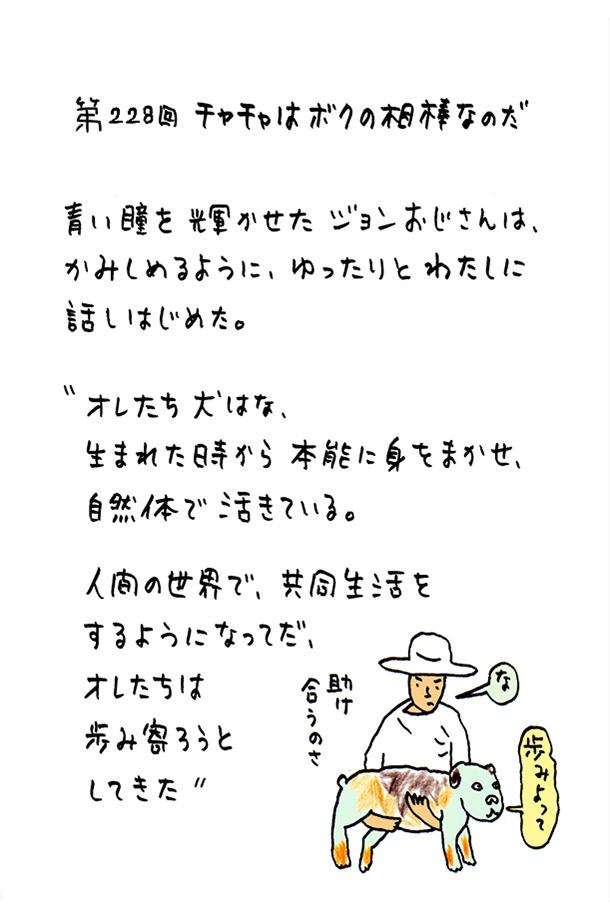 第228回 チャチャはボクの相棒なのだ
青い瞳を輝かせたジョンおじさんは、
かみしめるように、ゆったりとわたしに
話しはじめた。
〝オレたち犬はな、
生まれた時から本能に身をまかせ、
自然体で活きている。
人間の世界で、共同生活を
するようになってだ、
オレたちは
歩み寄ろうと
してきた〃
助け
合うのさ
な
歩みよって